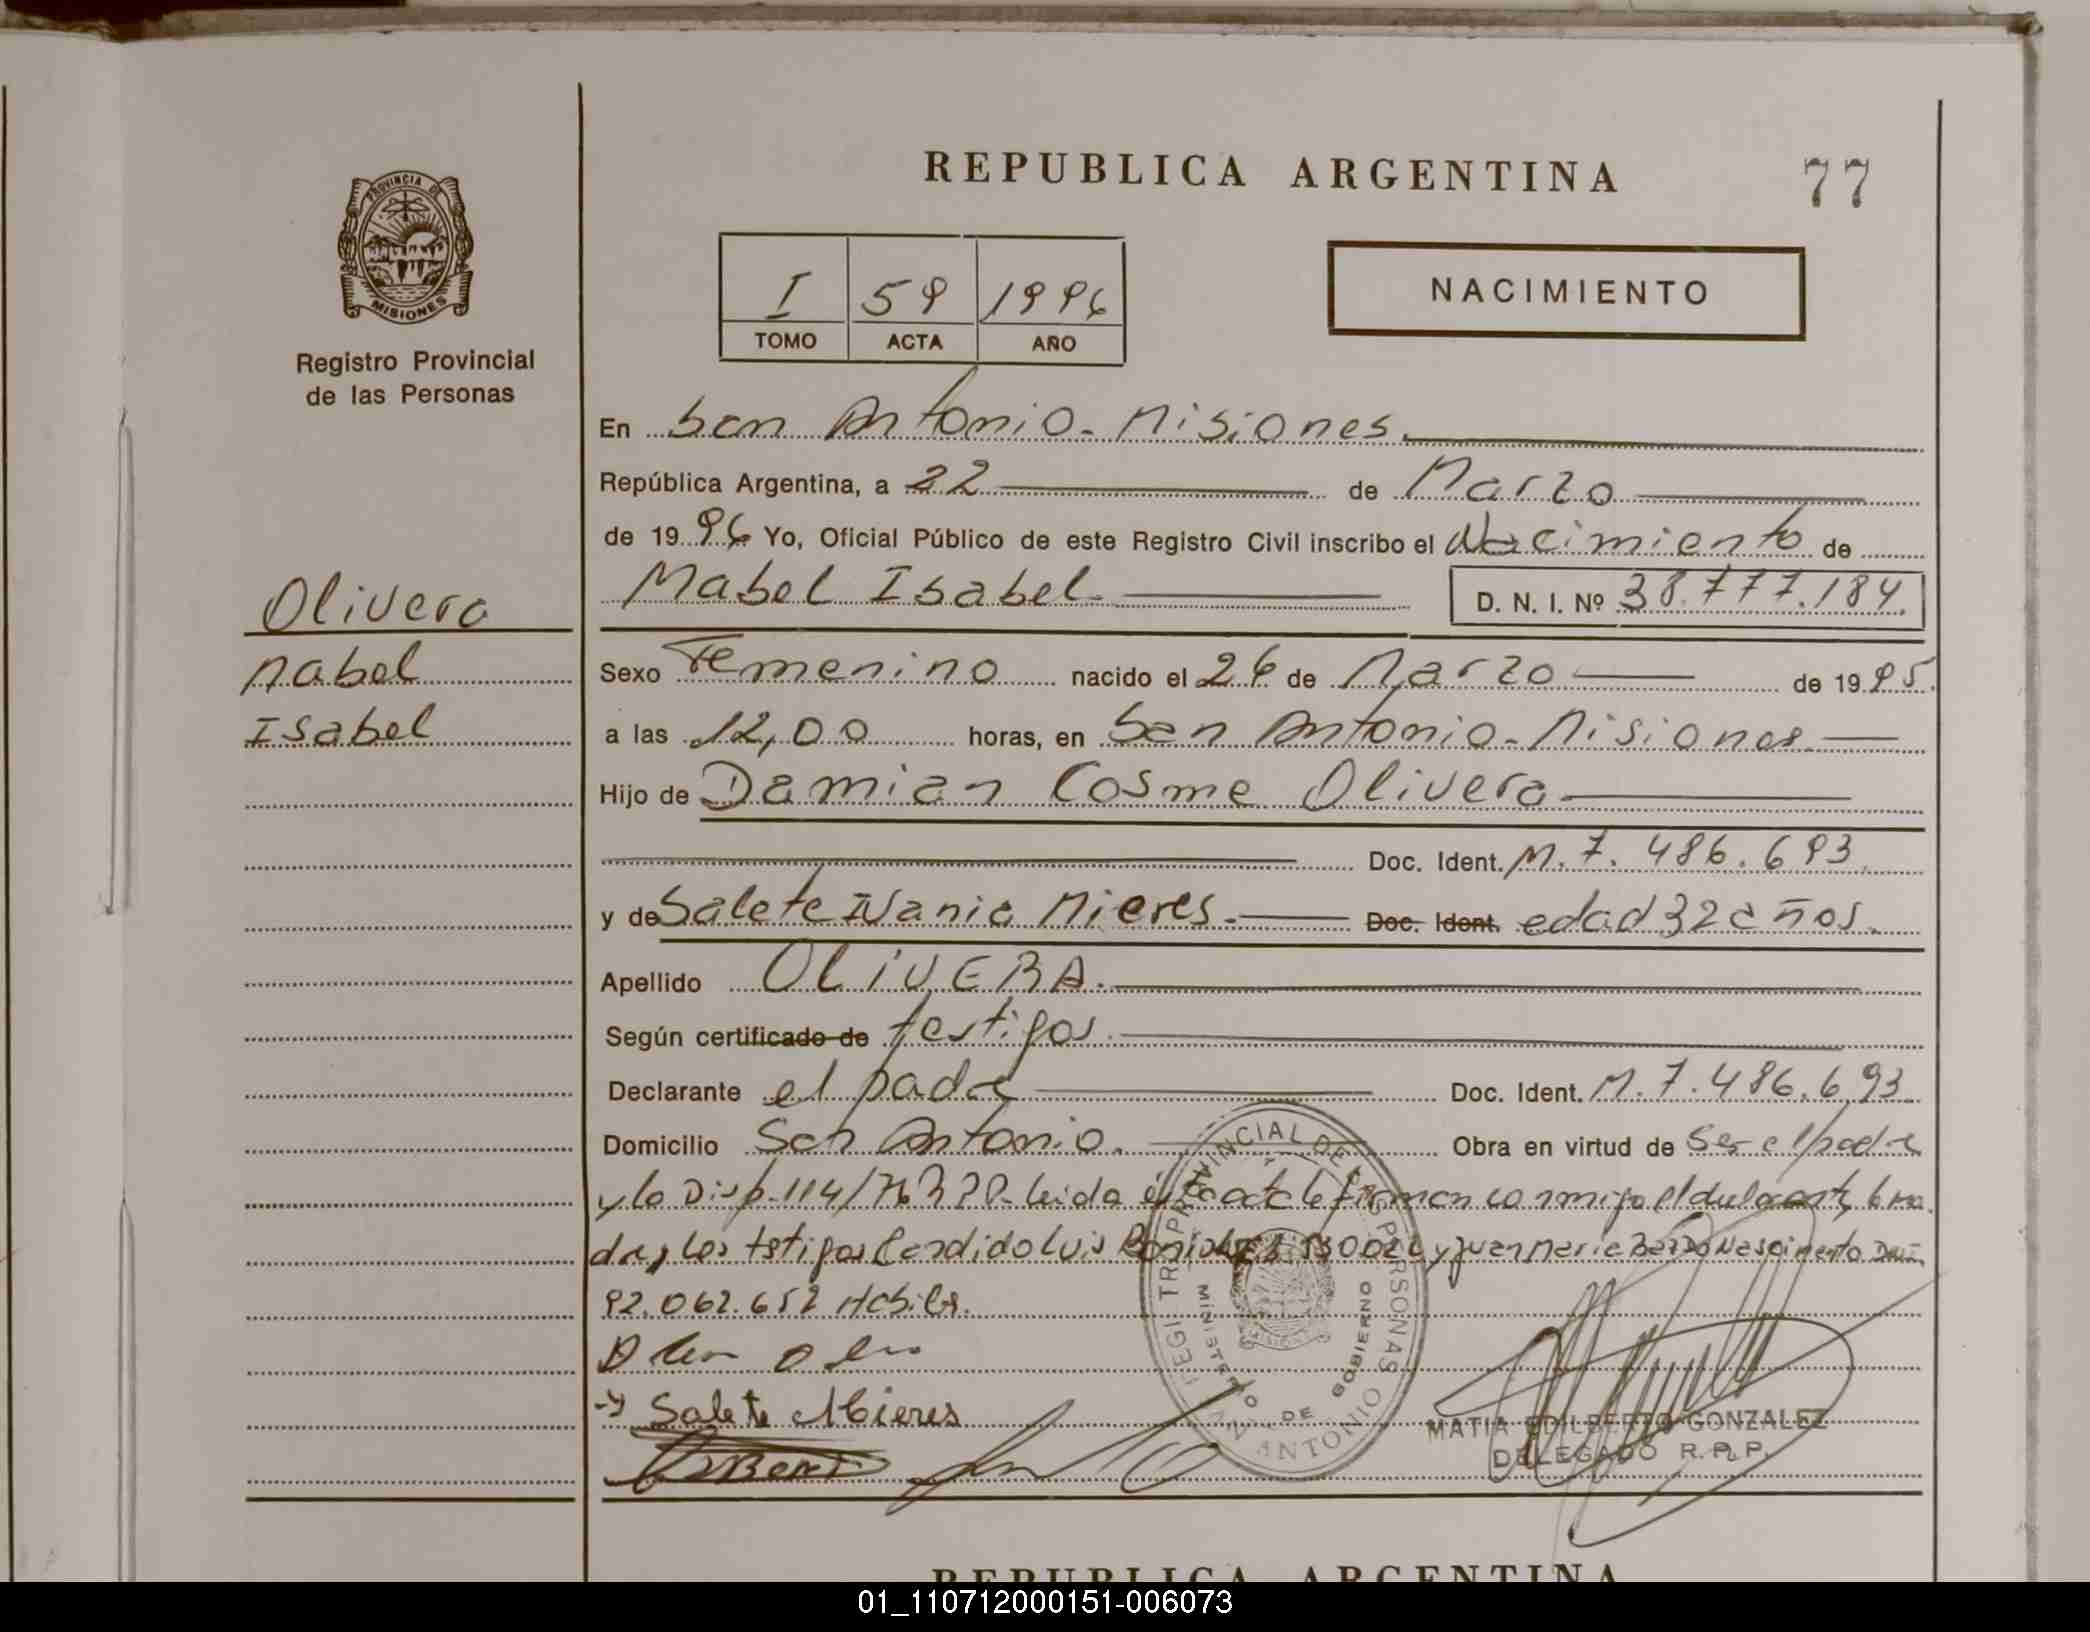 REPUBLICA ARGENTINA
77
PROVINCIA DE MISIONES
Registro Provincial
de las Personas
I 59 1996
TOMO ACTA AÑO
NACIMIENTO
En San Antonio - Misiones.
República Argentina, a 22 de Marzo
de 1996 Yo, Oficial Público de este Registro Civil inscribo el Nacimiento de
Mabel Isabel D. N. I. Nº 38.777.184.
Olivera
Mabel
Isabel
Sexo Femenino nacido el 26 de Marzo de 1995.
a las 12,00 horas, en San Antonio - Misiones
Hijo de Damian Cosme Olivera
Doc. Ident. M. 7.486.693.
y de Salete Ivania Mieres. Doc. Ident. edad 32 años.
Apellido OLIVERA.
Según certificado de testigos.
Declarante el padre Doc. Ident. M. 7.486.693.
Domicilio San Antonio. Obra en virtud de ser el padre
y la Disp. 114/76 RPP. Leida ésta acta la firman conmigo el declarante, la ma
dre y los testigos Candido Luis y Juan Maria Nascimento
92.062.652 Habiles.
Salete Mieres
REGISTRO PROVINCIAL DE LAS PERSONAS
MINISTERIO DE GOBIERNO
SAN ANTONIO
MATIA EDILBERTO GONZALEZ
DELEGADO R. P. P.
REPUBLICA ARGENTINA
01_110712000151-006073